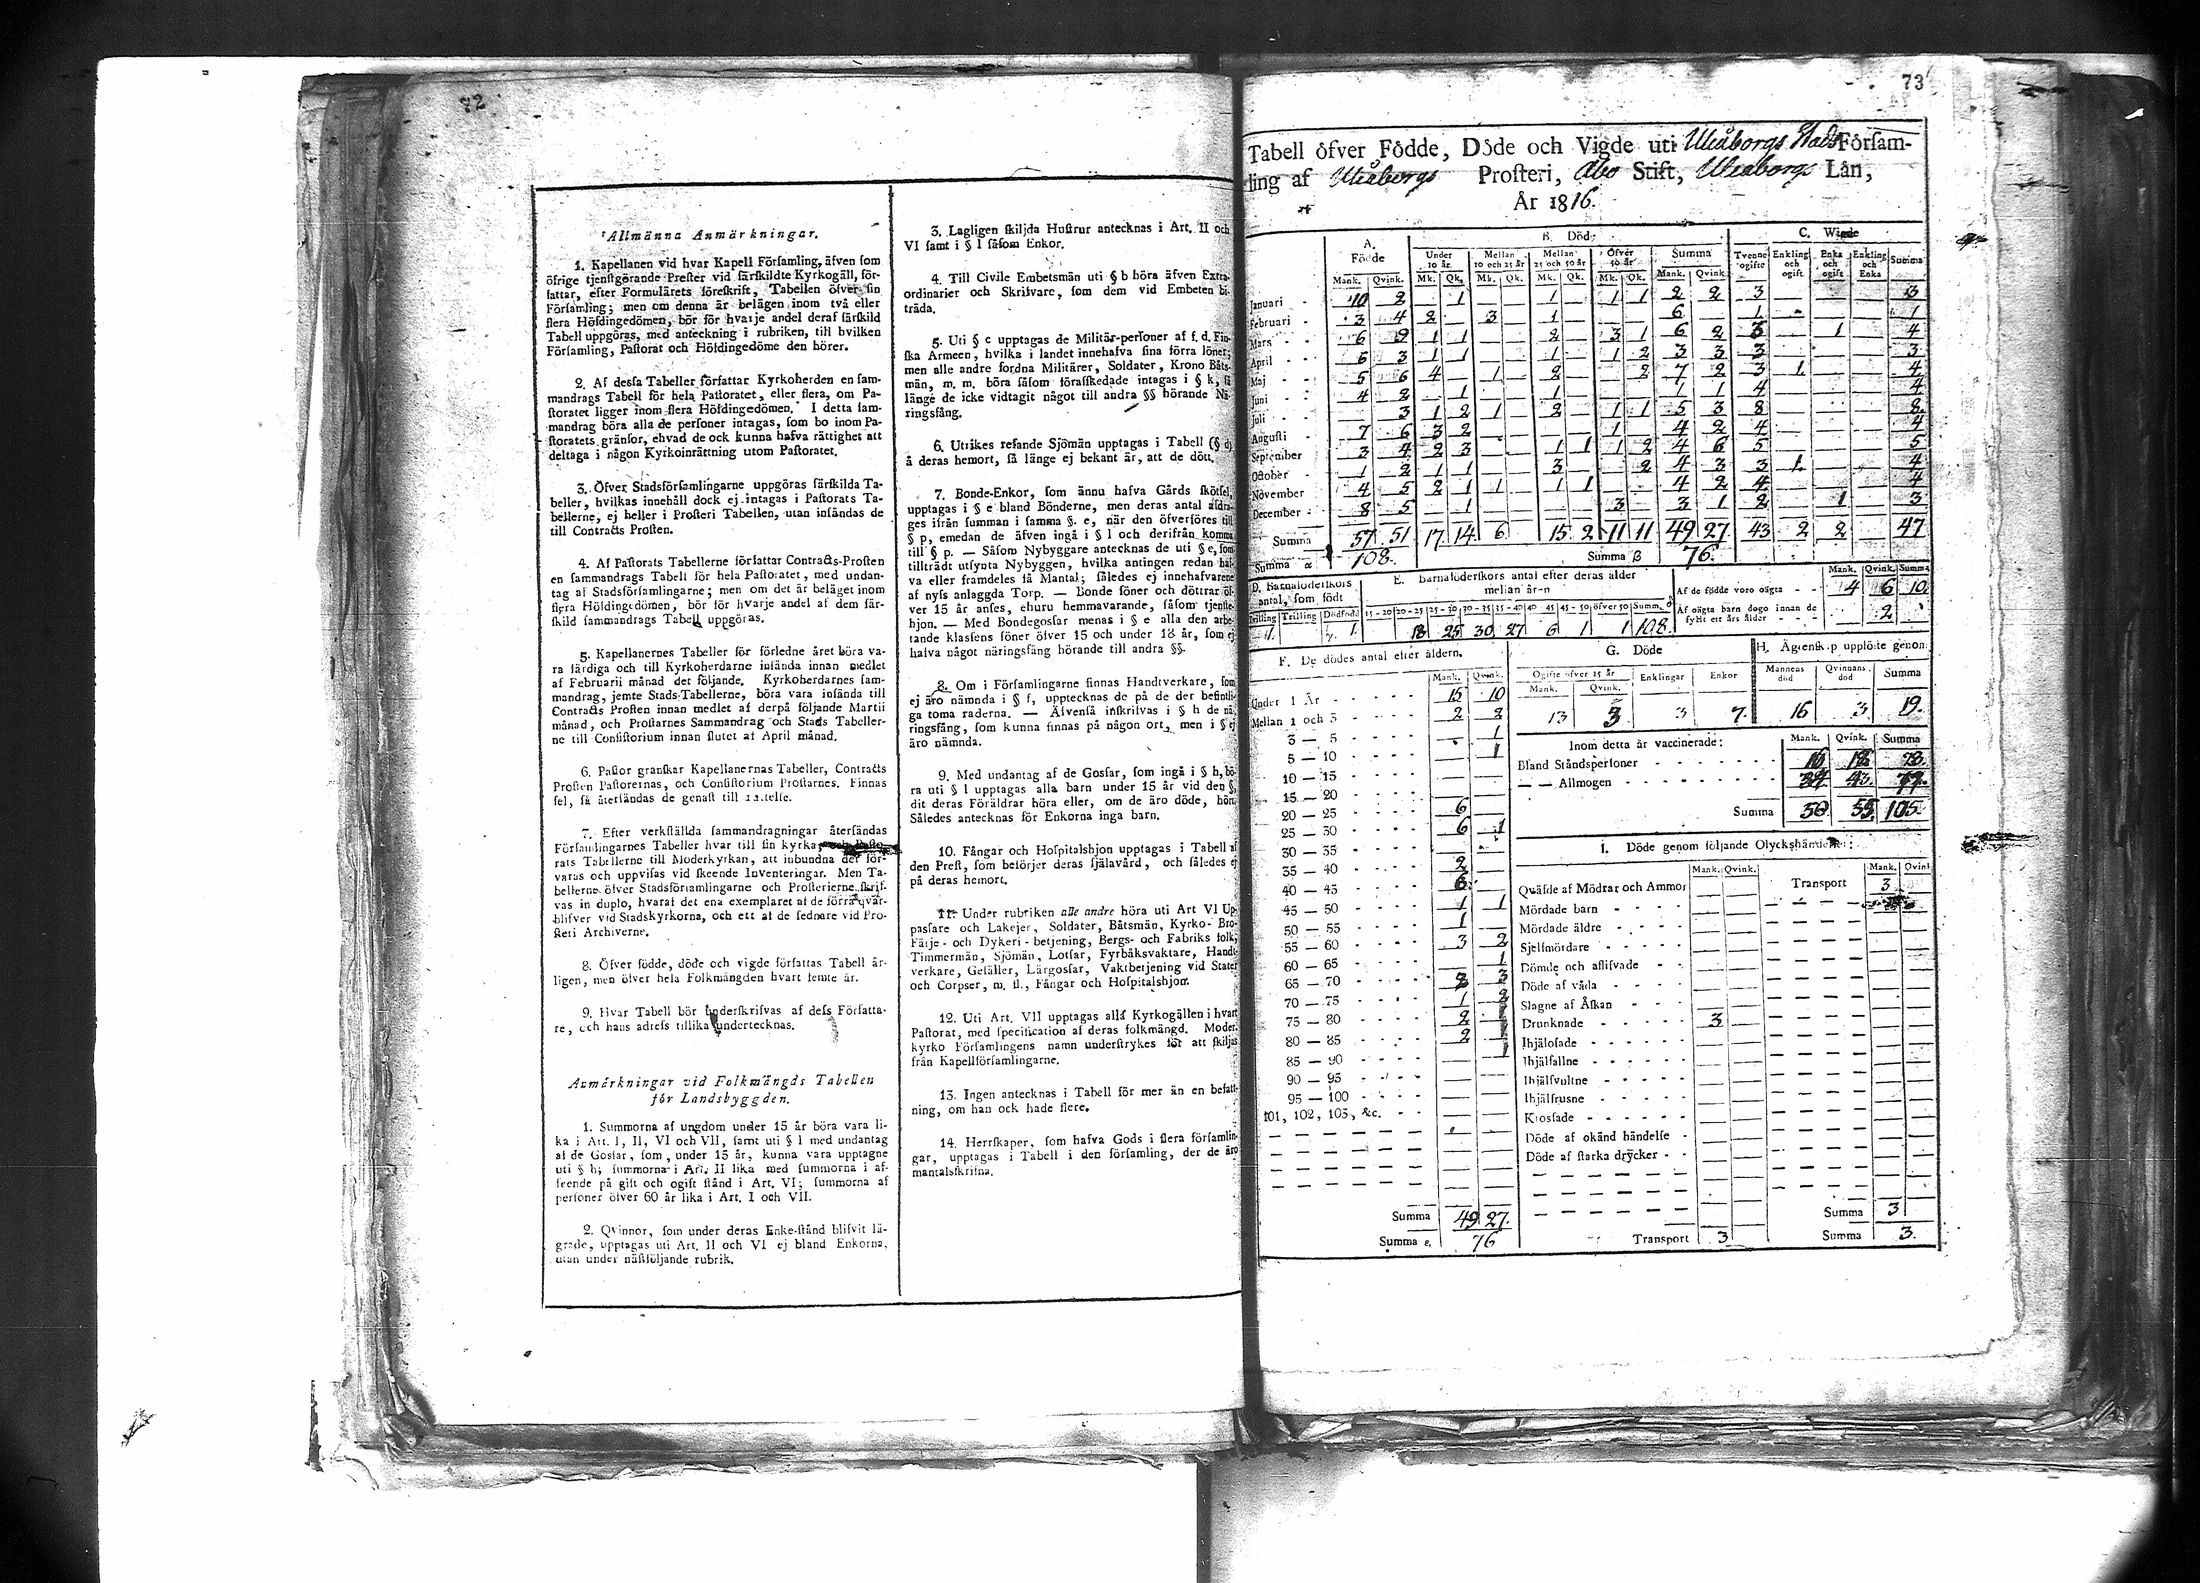 72
Allmänna Anmärkningar.
1. Kapellanen vid hvar Kapell Församling, äfven som
öfrige tjenstgörande Prester vid särskildte Kyrkogäll, för-
fattar, efter Formulärets föreskrift, Tabellen öfver sin
Församling; men om denna är belägen inom två eller
flera Höfdingedömen, bör för hvarje andel deraf särskild
Tabell uppgöras, med anteckning i rubriken, till hvilken
Församling, Pastorat och Höfdingedöme den hörer.
2. Af dessa Tabeller författar Kyrkoherden en sam-
mandrags Tabell för hela Pastoratet, eller flera, om Pa-
storatet ligger inom flera Höfdingedömen. I detta sam-
mandrag böra alla de personer intagas, som bo inom Pa-
storatets gränsor, ehvad de ock kunna hafva rättighet att
deltaga i någon Kyrkoinrättning utom Pastoratet.
3. Öfver Stadsförsamlingarne uppgöras särskilda Ta-
beller, hvilkas innehåll dock ej intagas i Pastorats Ta-
bellerne, ej heller i Prosteri Tabellen, utan insändas de
till Contracts Prosten.
4. Af Pastorats Tabellerne författar Contracts-Prosten
en sammandrags Tabell för hela Pastoratet, med undan-
tag af Stadsförsamlingarne; men om det är beläget inom
flera Höfdingedömen, bör för hvarje andel af dem sär-
skild sammandrags Tabell uppgöras.
5. Kapellanernes Tabeller för förledne året böra va-
ra färdiga och till Kyrkoherdarne insända innan medlet
af Februarii månad det följande. Kyrkoherdarnes sam-
mandrag, jemte Stads-Tabellerne, böra vara insända till
Contracts Prosten innan medlet af derpå följande Martii
månad, och Prostarnes Sammandrag och Stads Tabeller-
ne till Consistorium innan slutet af April månad.
6. Pastor granskar Kapellanernas Tabeller, Contracts
Prosten Pastorernas, och Consistorium Prostarnes. Finnas
fel, så återsändas de genast till rättelse.
7. Efter verkställda sammandragningar återsändas
Församlingarnes Tabeller hvar till sin kyrka, och Pasto-
rats Tabellerne till Moderkyrkan, att inbundna der för-
varas och uppvisas vid skeende Inventeringar. Men Ta-
bellerne öfver Stadsförsamlingarne och Prosterierne skrif-
vas in duplo, hvaraf det ena exemplaret af de förra qvar-
blifver vid Stadskyrkorna, och ett af de sednare vid Pro-
steri Archiverne.
8. Öfver födde, döde och vigde författas Tabell år-
ligen, men öfver hela Folkmängden hvart femte år.
9. Hvar Tabell bör underskrifvas af dess Författa-
re, och hans adress tillika undertecknas.
Anmärkningar vid Folkmängds Tabellen
för Landsbyggden.
1. Summorna af ungdom under 15 år böra vara li-
ka i Art. I, II, VI och VII, samt uti § l med undantag
af de Gossar, som, under 15 år, kunna vara upptagne
uti § h; summorna i Art. II lika med summorna i af-
seende på gift och ogift stånd i Art. VI; summorna af
personer öfver 60 år lika i Art. I och VII.
2. Qvinnor, som under deras Enke-stånd blifvit lä-
grade, upptagas uti Art. II och VI ej bland Enkorna,
utan under nästföljande rubrik.
3. Lagligen skiljda Hustrur antecknas i Art. II och
VI samt i § l såsom Enkor.
4. Till Civile Embetsmän uti § b höra äfven Extra-
ordinarier och Skrifvare, som dem vid Embeten bi-
träda.
5. Uti § c upptagas de Militär-personer af f. d. Fin-
ska Armeen, hvilka i landet innehafva sina förra löner;
men alle andre fordna Militärer, Soldater, Krono Båts-
män, m. m. böra såsom förafskedade intagas i § k, så
länge de icke vidtagit något till andra §§ hörande Nä-
ringsfång.
6. Utrikes resande Sjömän upptagas i Tabell (§ d)
å deras hemort, så länge ej bekant är, att de dött.
7. Bonde-Enkor, som ännu hafva Gårds skötsel,
upptagas i § e bland Bönderne, men deras antal afdra-
ges ifrån summan i samma §. e, när den öfverföres till
§ p, emedan de äfven ingå i § l och derifrån komma
till § p. — Såsom Nybyggare antecknas de uti § e, som
tillträdt utsynta Nybyggen, hvilka antingen redan haf-
va eller framdeles få Mantal; således ej innehafvarene
af nyss anlaggda Torp. — Bonde söner och döttrar öf-
ver 15 år anses, ehuru hemmavarande, såsom tjenste-
hjon. — Med Bondegossar menas i § e alla den arbe-
tande klassens söner öfver 15 och under 18 år, som ej
hafva något näringsfång hörande till andra §§.
8. Om i Församlingarne finnas Handtverkare, som
ej äro nämnda i § f, upptecknas de på de der befintli-
ga toma raderna. — Äfvenså inskrifvas i § h de nä-
ringsfång, som kunna finnas på någon ort, men i § ej
äro nämnda.
9. Med undantag af de Gossar, som ingå i § h, bö-
ra uti § l upptagas alla barn under 15 år vid den §,
dit deras Föräldrar höra eller, om de äro döde, hört.
Således antecknas för Enkorna inga barn.
10. Fångar och Hospitalshjon upptagas i Tabell af
den Prest, som besörjer deras själavård, och således ej
på deras hemort.
11. Under rubriken alle andre höra uti Art VI Up-
passare och Lakejer, Soldater, Båtsmän, Kyrko- Bro-
Färje- och Dykeri-betjening, Bergs- och Fabriks folk,
Timmermän, Sjömän, Lotsar, Fyrbåksvaktare, Handt-
verkare, Gesäller, Lärgossar, Vaktbetjening vid Stater
och Corpser, m. fl., Fångar och Hospitalshjon.
12. Uti Art. VII upptagas alla Kyrkogällen i hvart
Pastorat, med specification af deras folkmängd. Moder-
kyrko Församlingens namn understrykes för att skiljas
från Kapellförsamlingarne.
13. Ingen antecknas i Tabell för mer än en befatt-
ning, om han ock hade flere.
14. Herrskaper, som hafva Gods i flera församlin-
gar, upptagas i Tabell i den församling, der de äro
mantalskrifna.
73
Tabell öfver Födde, Döde och Vigde uti Uleåborgs Stads Försam-
ling af Uleåborgs Prosteri, Åbo Stift, Uleaborgs Län,
År 1816.
A. Födde B. Döde C. Wigde
Under 10 år. Mellan 10 och 25 år Mellan 25 och 50 år Öfver 50 år Summa Tvenne ogifte Enkling och ogift Enka och ogift Enkling och Enka Summa
Mank. Qvink. Mk. Qk. Mk. Qk. Mk. Qk. Mk. Qk. Mank. Qvink.
Januari 10 2 — 1 — — 1 — 1 1 2 2 3 — — — 3
Februari 3 4 2 — 3 — 1 — — — 6 — 1 — — — 1
Mars 6 9 1 1 — — 2 — 3 1 6 2 3 — 1 — 4
April 6 3 1 1 — — 1 — 1 2 3 3 3 — — — 3
Maj 5 6 4 — 1 — 2 — — 2 7 2 3 1 — — 4
Juni 4 2 — 1 — — 1 — — — 1 1 4 — — — 4
Juli 3 1 2 1 — 2 — 1 1 5 3 8 — — — 8
Augusti 7 6 3 2 — — — — 1 — 4 2 4 — — — 4
September 3 4 2 3 — — 1 1 1 2 4 6 5 — — — 5
October 1 2 1 1 — — 3 — — 2 4 3 3 1 — — 4
November 4 5 2 1 1 — 1 1 — — 4 2 4 — — — 4
December 8 5 — 1 — — — — 3 — 3 1 2 — 1 — 3
Summa 57 51 17 14 6 15 2 11 11 49 27 43 2 2 47
Summa α 108. Summa β 76.
D. Barnaföderskors antal, som födt
Tvilling Trilling Dödfödd
1
E. Barnaföderskors antal efter deras ålder mellan åren
15-20 20-25 25-30 30-35 35-40 40-45 45-50 öfver 50 Summ.
18 25 30 27 6 1 1 108
Mank. Qvink. Summa
Af de födde voro oägta - - 4 6 10
Af oägta barn dogo innan de
fyllt ett års ålder - - - 2
F. De dödes antal efter åldern.
Mank. Qvink.
Under 1 År 15 10
Mellan 1 och 3 2 2
3 — 5 1
5 — 10 1
10 — 15
15 — 20
20 — 25 6
25 — 30 6 1
30 — 35
35 — 40 2
40 — 45 6
45 — 50 1 1
50 — 55 1
55 — 60 3 2
60 — 65 1
65 — 70 2 3
70 — 75 1 2
75 — 80 2
80 — 85 2
85 — 90
90 — 95
95 — 100
101, 102, 103, &c.
Summa 49 27.
Summa ε. 76
G. Döde
Ogifte öfver 15 år Enklingar Enkor
Mank. Qvink.
13 3 3 7.
H. Ägtenskap upplöste genom
Mannens död Qvinnans död Summa
16 3 19.
Inom detta år vaccinerade: Mank. Qvink. Summa
Bland Ståndspersoner
— — Allmogen 43. 77.
Summa 105
I. Döde genom följande Olyckshändelser:
Mank. Qvink. Mank. Qvink
Qväfde af Mödrar och Ammor Transport 3
Mördade barn
Mördade äldre
Sjelfmördare
Dömde och aflifvade
Döde af våda
Slagne af Åskan
Drunknade 3
Ihjälsfallne
Ihjälfrusne
Krossade
Döde af okänd händelse
Döde af starka drycker
Summa 3
Transport 3 Summa 3.